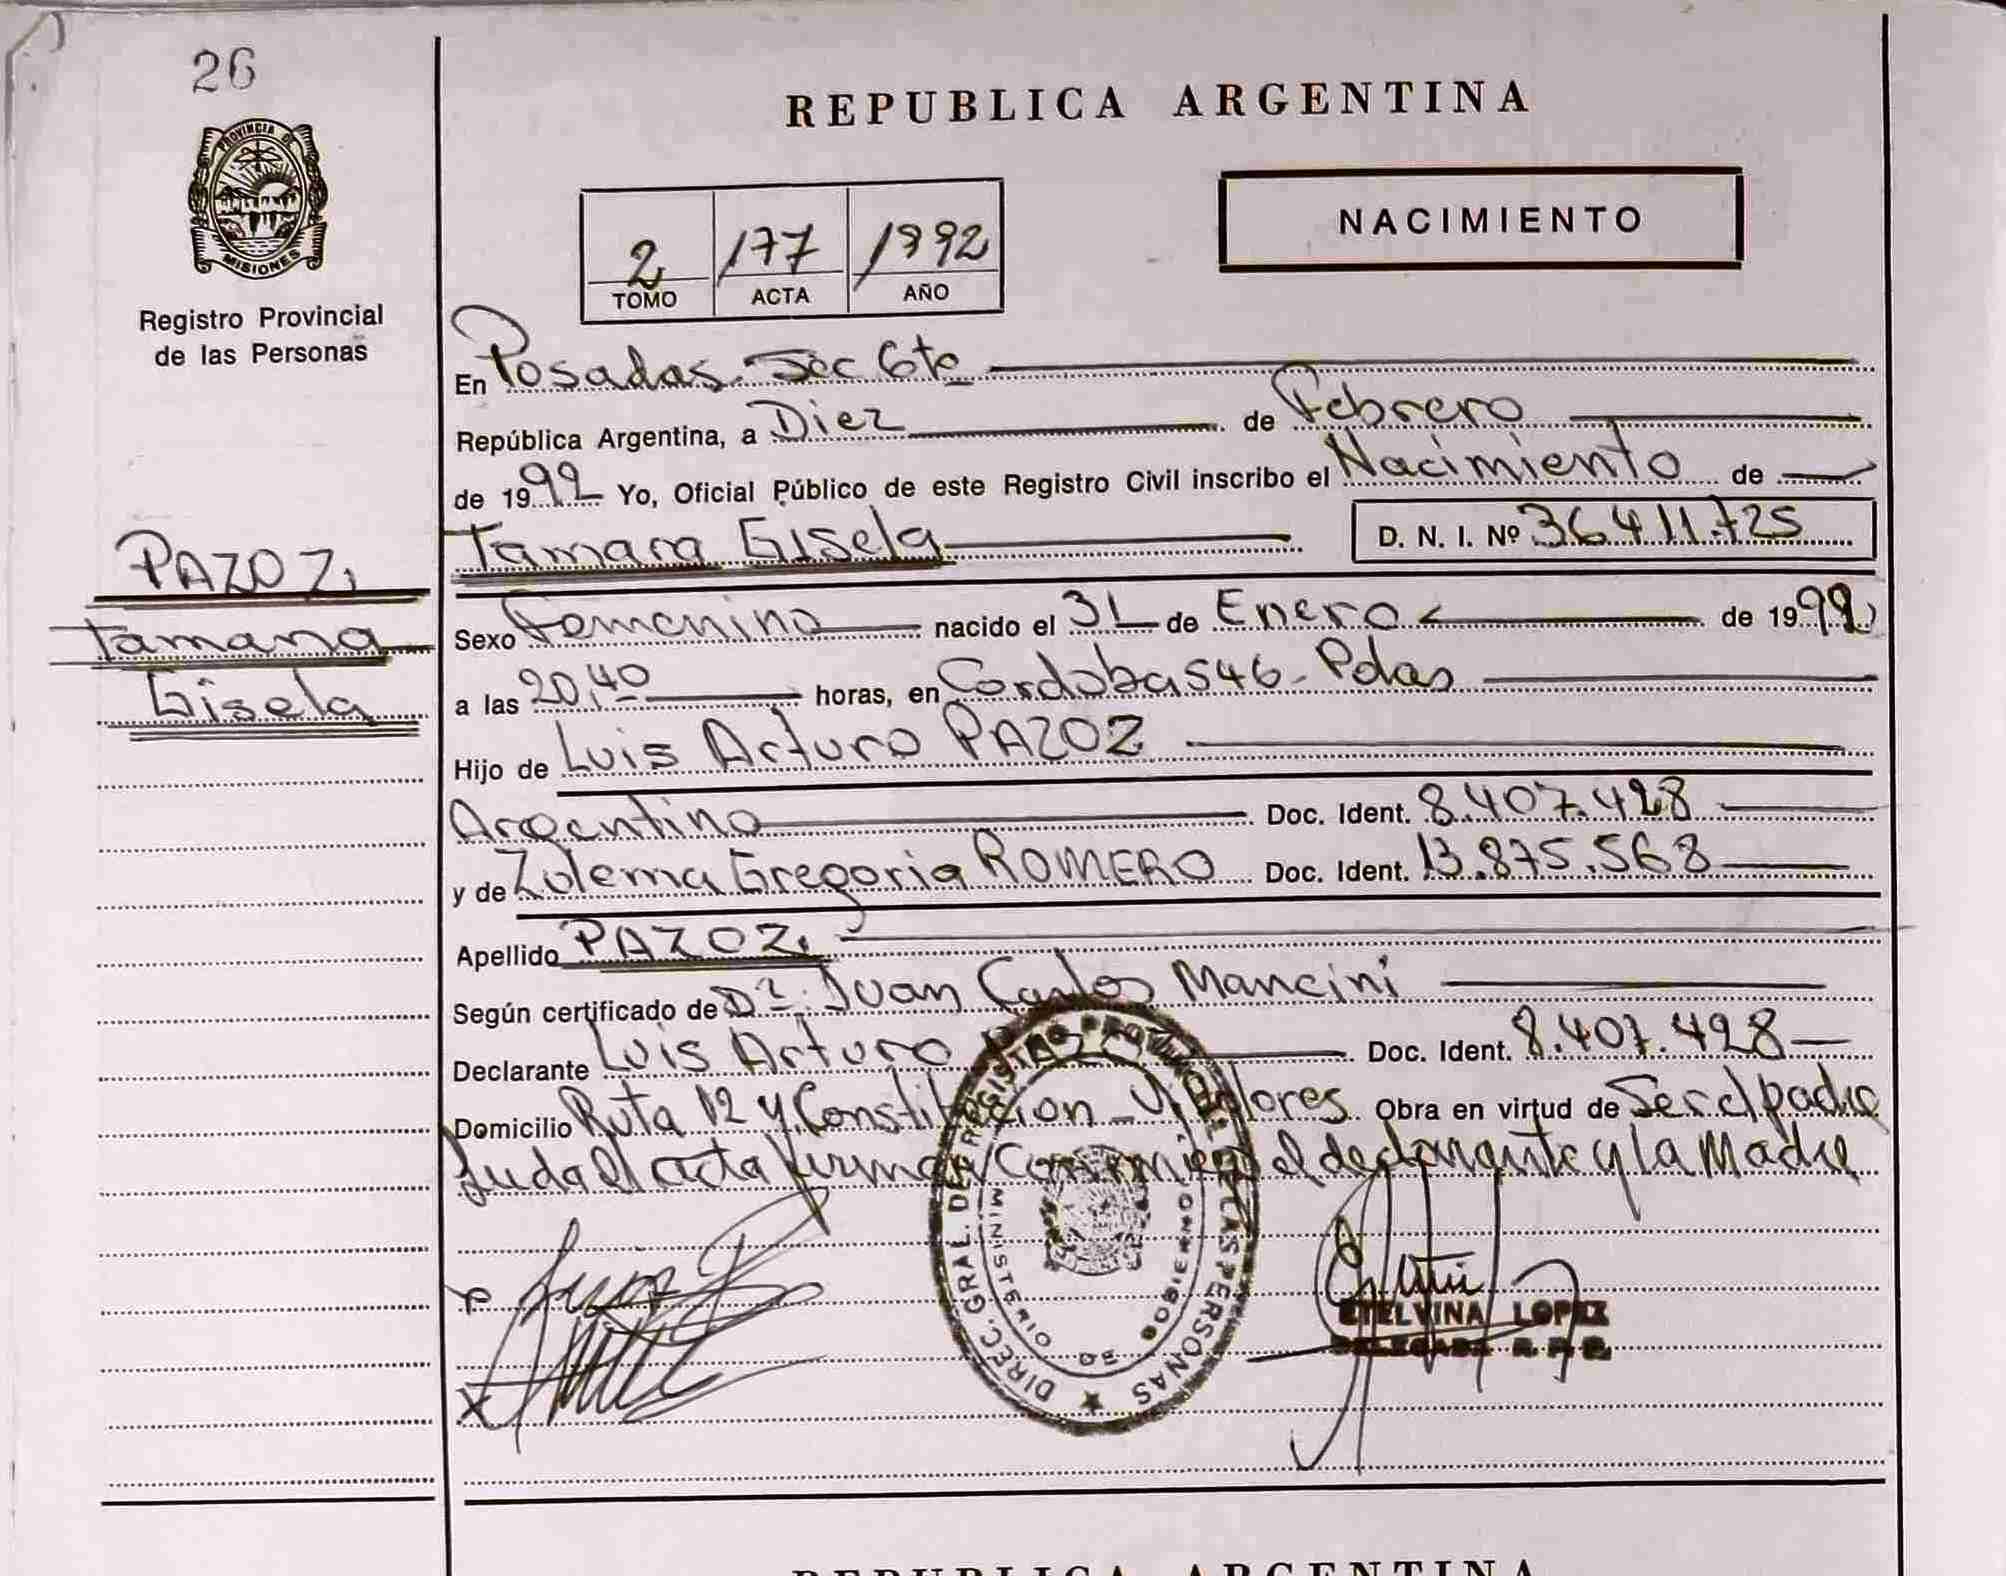 26
PROVINCIA DE
MISIONES
Registro Provincial
de las Personas
PAZOZ,
Tamara
Gisela
REPUBLICA ARGENTINA
NACIMIENTO
2 177 1992
TOMO ACTA AÑO
En Posadas. Sec 6ta
República Argentina, a Diez de Febrero
de 1992 Yo, Oficial Público de este Registro Civil inscribo el Nacimiento de
Tamara Gisela D. N. I. Nº 36.411.725
Sexo Femenino nacido el 31 de Enero de 1992
a las 20,40 horas, en Cordoba 546 - Pdas
Hijo de Luis Arturo PAZOZ
Argentino Doc. Ident. 8.407.428
y de Zulema Gregoria ROMERO Doc. Ident. 13.875.568
Apellido PAZOZ,
Según certificado de Dr. Juan Carlos Mancini
Declarante Luis Arturo Doc. Ident. 8.407.428
Domicilio Ruta 12 y Constitucion - Obra en virtud de Ser el padre
el acta el declarante y la Madre
DIREC. GRAL. DE REGISTRO PROV. DE LAS PERSONAS
MINISTERIO DE GOBIERNO
ETELVINA LOPEZ
DELEGADA R.P.P.
REPUBLICA ARGENTINA